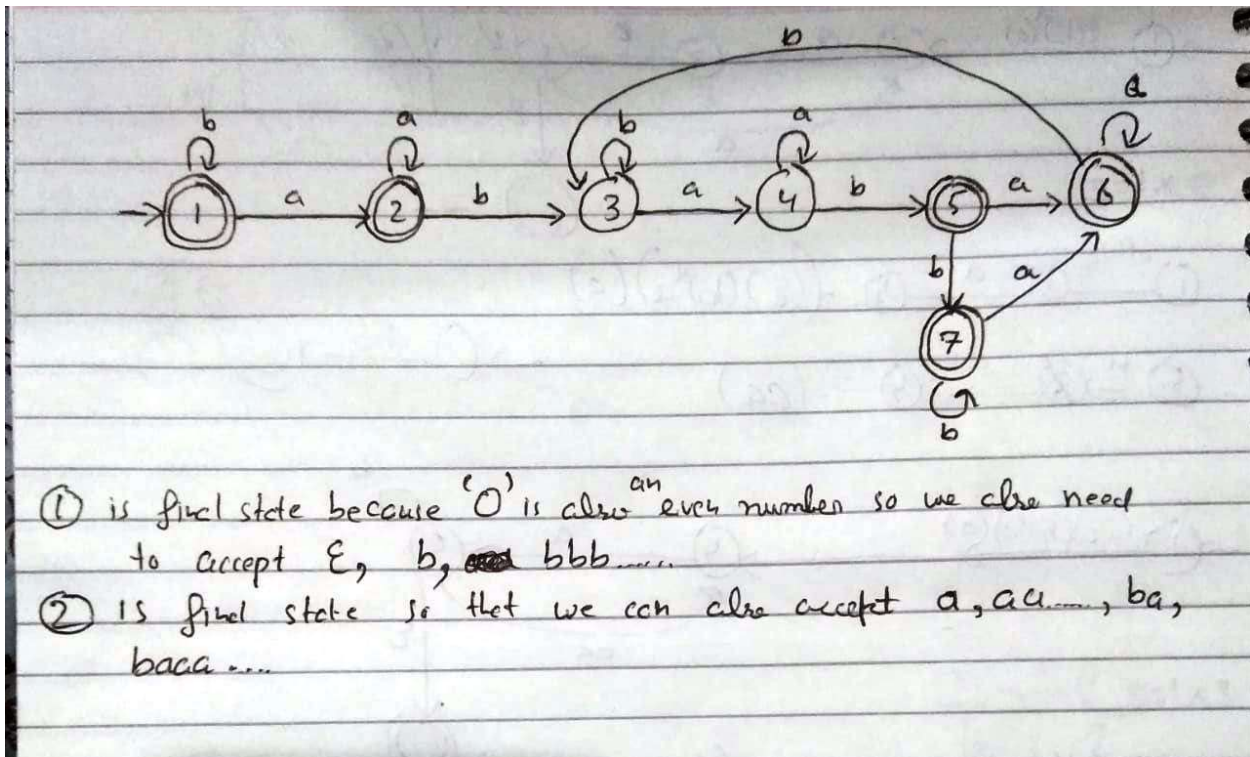 b
b a b a a
1 a 2 b 3 a 4 b 5 a 6
b a
7
b
① is final state because '0' is also an even number so we also need
to accept ε, b, bbb......
② is final state so that we can also accept a, aa...., ba,
baaa ....